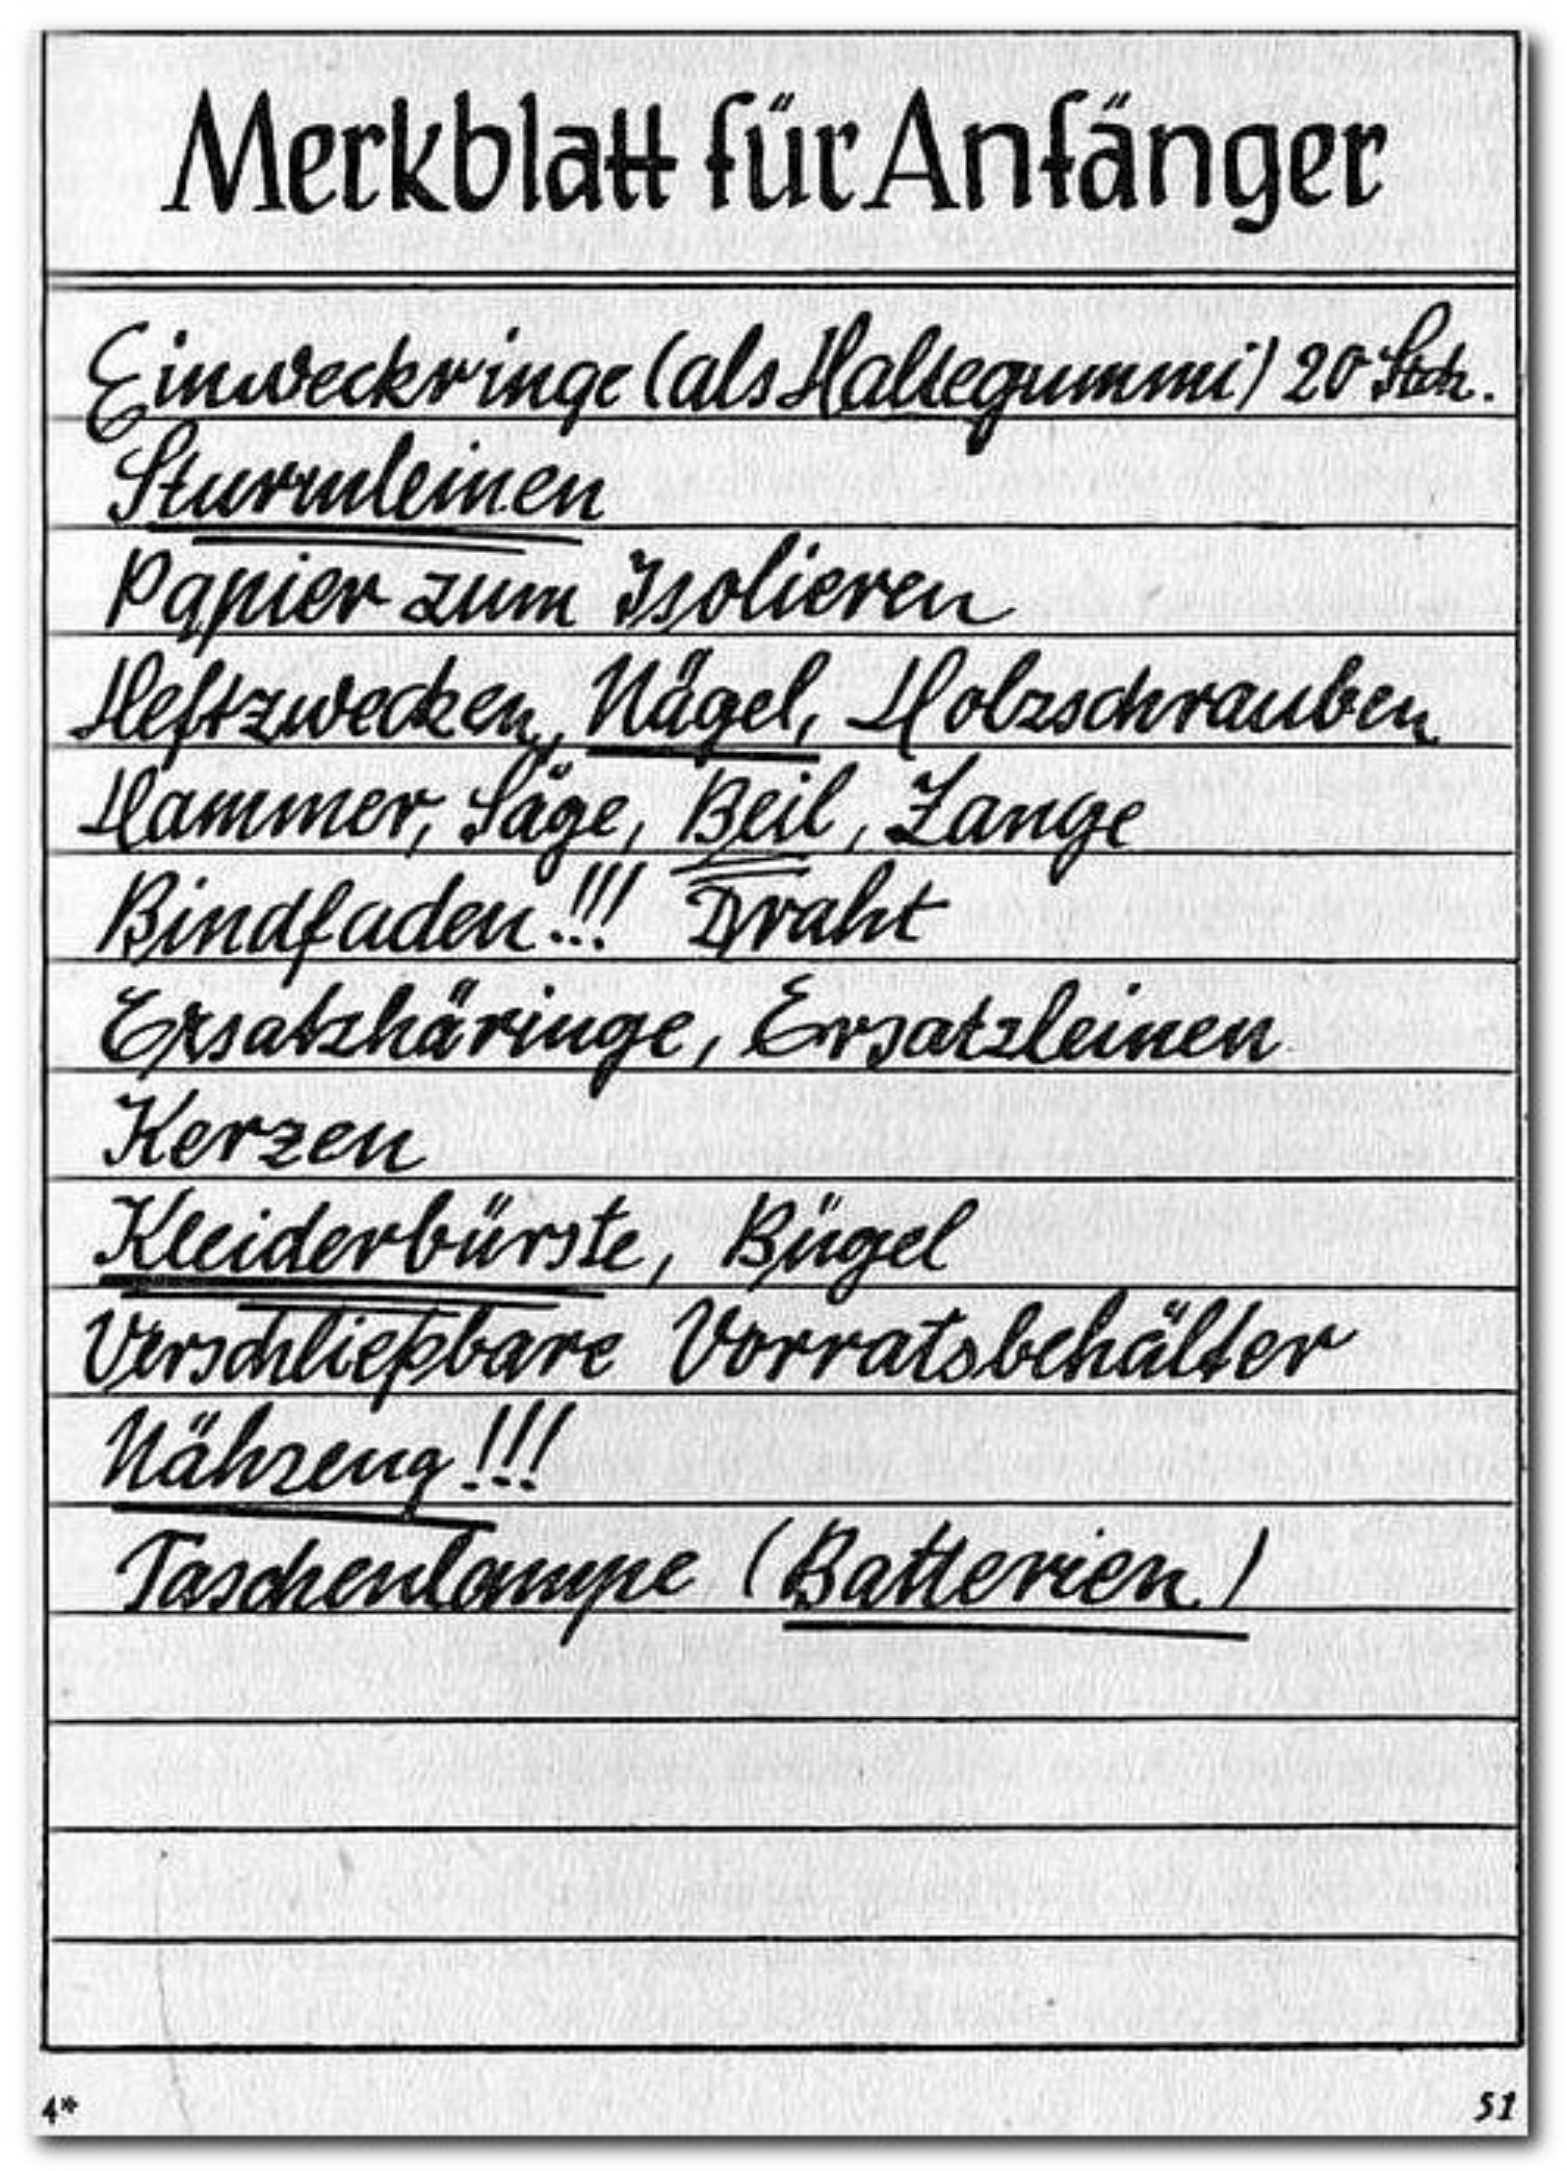 Merkblatt für Anfänger
Einweckringe (als Haltegummi) 20 Stck.
Sturmleinen
Papier zum Isolieren
Heftzwecken, Nägel, Holzschrauben
Hammer, Säge, Beil, Zange
Bindfaden!!! Draht
Ersatzhäringe, Ersatzleinen
Kerzen
Kleiderbürste, Bügel
Verschließbare Vorratsbehälter
Nähzeug!!!
Taschenlampe (Batterien)
4* 51